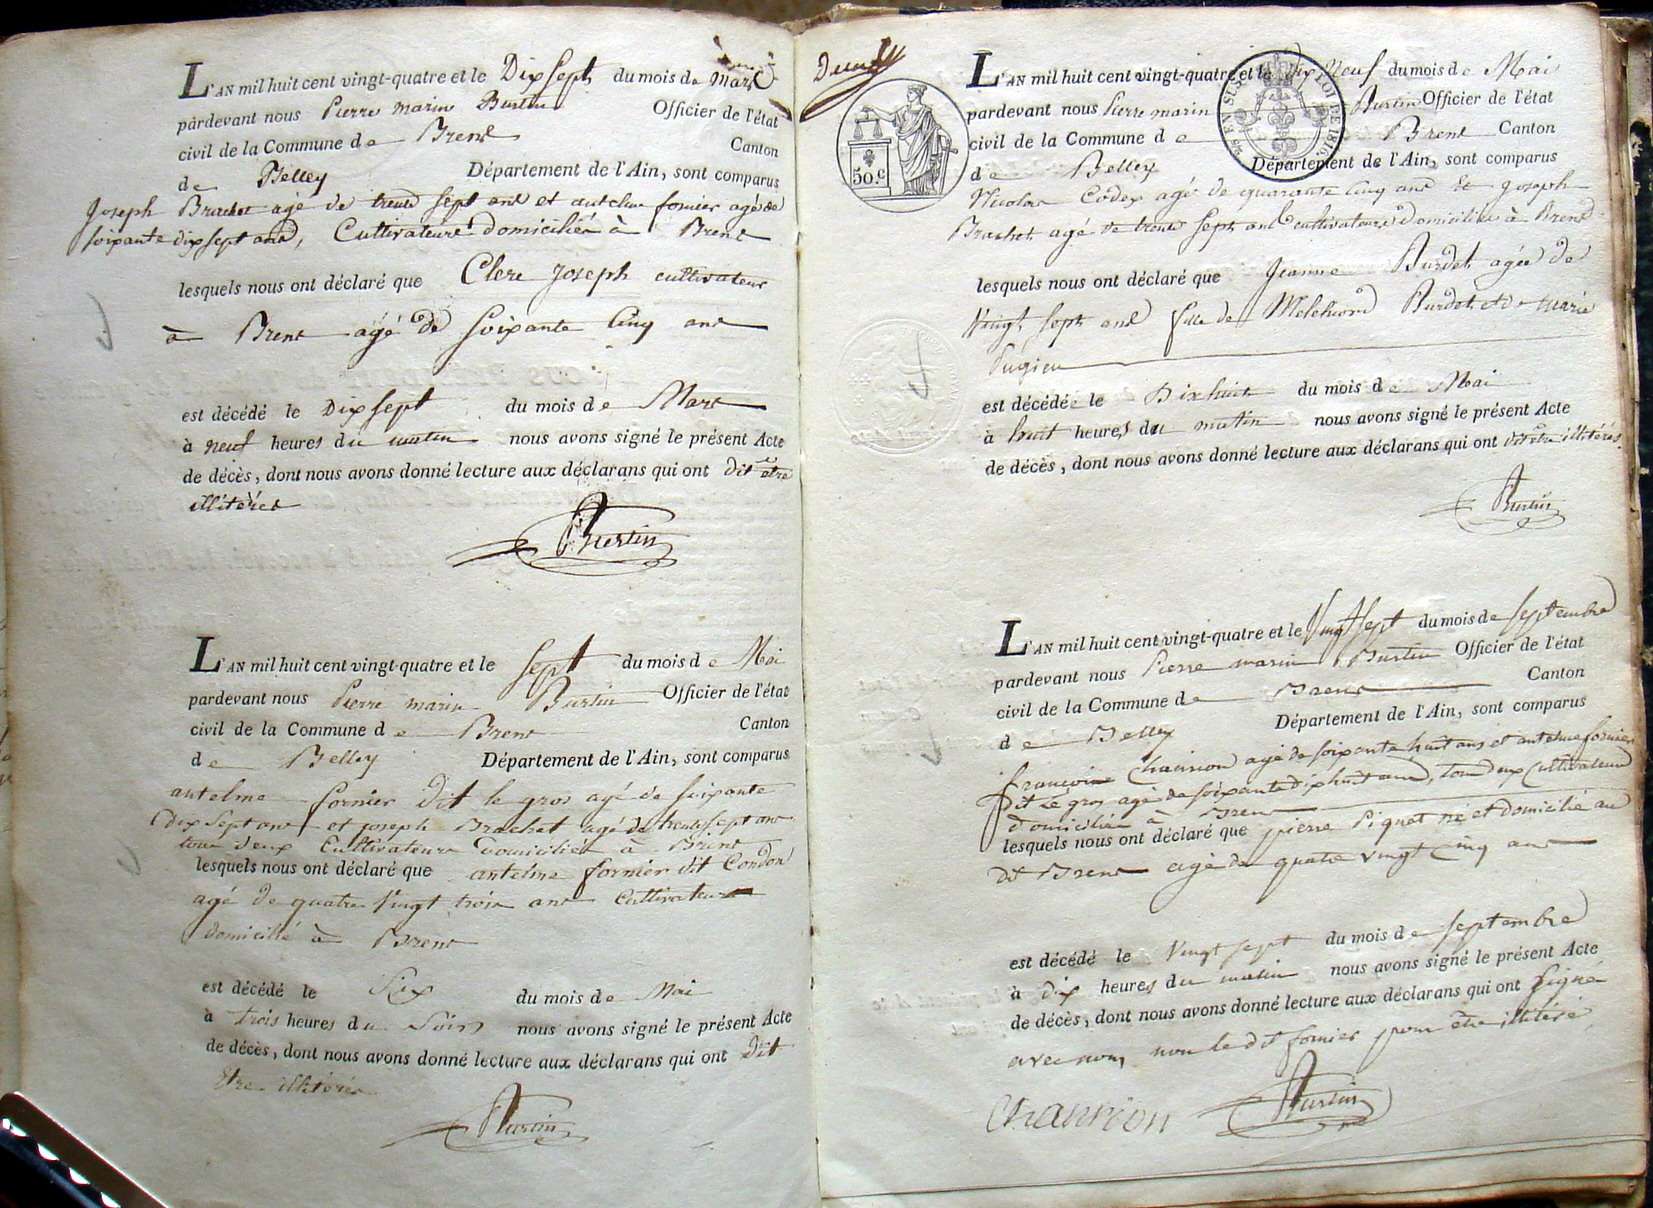 L'AN mil huit cent vingt-quatre et le Dix Sept du mois de Mars
pardevant nous Pierre marin Burtin Officier de l'état
civil de la Commune de Brens Canton
de Belley Département de l'Ain, sont comparus
Joseph Brachet agé de trente sept ans et antelme fornier agé de
soixante dix sept ans, Cultivateurs domiciliés à Brens
lesquels nous ont déclaré que Clerc Joseph cultivateur
à Brens agé de Soixante Cinq ans
est décédé le Dix sept du mois de Mars
à neuf heures du matin nous avons signé le présent Acte
de décès, dont nous avons donné lecture aux déclarans qui ont dit etre
illitérés
Burtin
L'AN mil huit cent vingt-quatre et le Sept du mois de Mai
pardevant nous Pierre marin Burtin Officier de l'état
civil de la Commune de Brens Canton
de Belley Département de l'Ain, sont comparus
antelme fornier dit le gros agé de soixante
dix Sept ans et joseph Brachet agé de trente sept ans
tous deux Cultivateurs domiciliés à Brens
lesquels nous ont déclaré que antelme fornier dit Condon
agé de quatre Vingt trois ans Cultivateur
domicilié à Brens
est décédé le Six du mois de Mai
à trois heures du Soir nous avons signé le présent Acte
de décès, dont nous avons donné lecture aux déclarans qui ont dit
Etre illitérés
Burtin
50.c
LOI DE 1816.
L'AN mil huit cent vingt-quatre et le dix Neuf du mois de Mai
pardevant nous Pierre marin Burtin Officier de l'état
civil de la Commune de Brens Canton
de Belley Département de l'Ain, sont comparus
Nicolas Codex agé de quarante Cinq ans et Joseph
Brachet agé de trente Sept ans cultivateurs Domiciliés à Brens
lesquels nous ont déclaré que Jeanne Burdet agée de
Vingt sept ans fille de Melchiord Burdet et de marie
Pugieu
est décédée le Dix huit du mois de Mai
à huit heures du matin nous avons signé le présent Acte
de décès, dont nous avons donné lecture aux déclarans qui ont dit etre illitérés
Burtin
L'AN mil huit cent vingt-quatre et le Vingt Sept du mois de Septembre
pardevant nous Pierre marin Burtin Officier de l'état
civil de la Commune de Brens Canton
de Belley Département de l'Ain, sont comparus
francois Chanrion agé de soixante huit ans et antelme fornier
dit Le gros agé de soixante dix huit ans, tous deux Cultivateurs
domiciliés à Brens
lesquels nous ont déclaré que pierre Piquet né et domicilié au
dit Brens agé de quatre vingt Cinq ans
est décédé le Vingt sept du mois de septembre
à dix heures du matin nous avons signé le présent Acte
de décès, dont nous avons donné lecture aux déclarans qui ont Signé
avec nous, non le dit fornier pour être illitéré
Chanrion Burtin